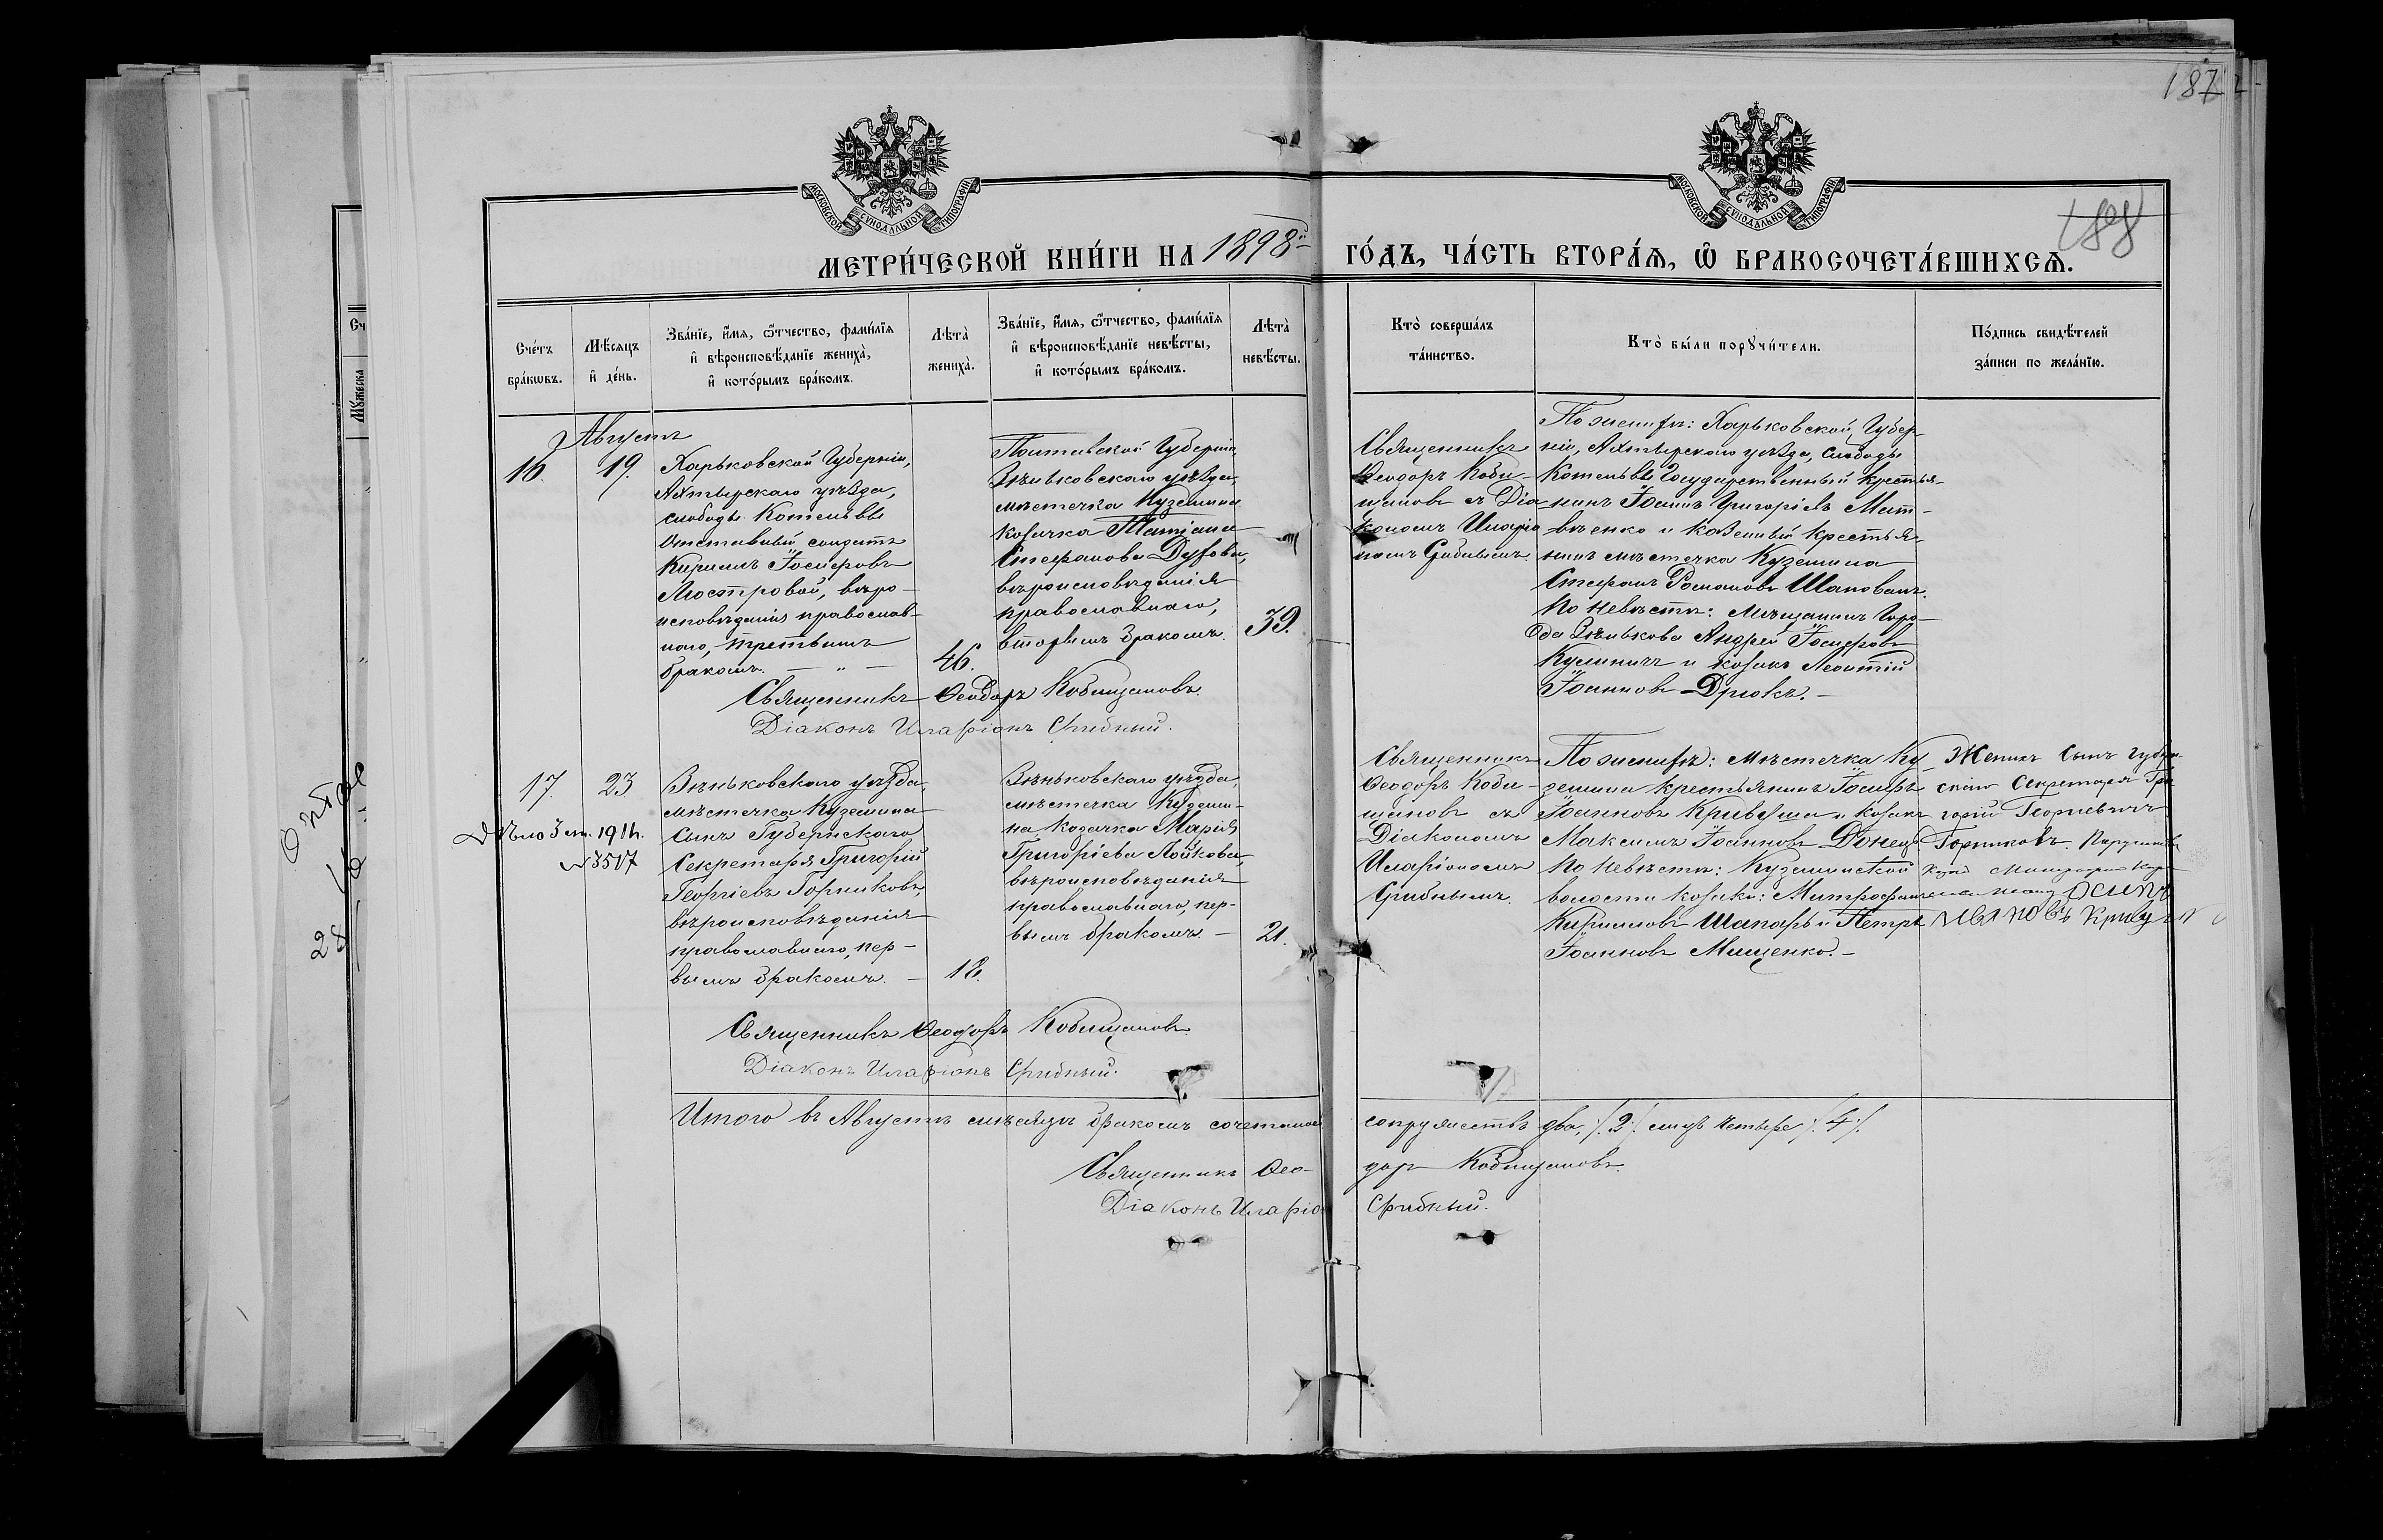 187
188
МОСКОВСКОЙ СѴНОДАЛЬНОЙ ТИПОГРАФІИ
МОСКОВСКОЙ СѴНОДАЛЬНОЙ ТИПОГРАФІИ
МЕТРИ́ЧЕСКОЙ КНИ́ГИ НА 1898й ГО́ДЪ, ЧА́СТЬ ВТОРА́Ѧ, Ѡ БРАКОСОЧЕТА́ВШИХСѦ.
Сче́тъ
бра́кѡвъ.
Мѣ́сяцъ
и҆ де́нь.
Зва́нїе, и҆́мя, ѻ҆́тчество, фами́лїя
и҆ вѣроисповѣ́данїе жениха̀,
и҆ кото́рымъ бра́комъ.
Лѣта̀
жениха̀.
Зва́нїе, и҆́мя, ѻ҆́тчество, фами́лїя
и҆ вѣроисповѣ́данїе невѣ́сты,
и҆ кото́рымъ бра́комъ.
Лѣта̀
невѣ́сты.
Кто̀ соверша́лъ
та́инство.
Кто̀ бы́ли порꙋчи́тели.
По́дпись свидѣ́телей
за́писи по жела́нїю.
Августъ
16.
19.
Харьковской Губерніи,
Ахтырскаго уѣзда,
слободы Котельвы
Отставный солдатъ
Кириллъ Іосифовъ
Мостровой, вѣро-
исповѣданія православ-
наго, третьимъ
бракомъ. — " —
46.
Полтавской Губерніи,
Зѣньковскаго уѣзда,
мѣстечка Куземина
козачка Татіана
Стефанова
вѣроисповѣданія
православнаго,
вторымъ бракомъ.
39.
Священникъ
Ѳеодоръ Коби-
щановъ съ Діа-
кономъ Иларіо-
номъ Срибнымъ.
По женихѣ: Харьковской Губер-
ніи, Ахтырскаго уѣзда, слободы
Котельвы Государственный крестья-
нинъ Іоаннъ Григоріевъ Мат-
вѣенко и казенный крестья-
нинъ мѣстечка Куземина
Стефанъ Романовъ Шаповалъ.
По невѣстѣ: мѣщанинъ горо-
да Зѣнькова Андрей Іосифовъ
Кулиничъ и козакъ Леонтій
Іоанновъ Дрюкъ. —
Священникъ Ѳеодоръ Кобищановъ.
Діаконъ Иларіонъ Срибный.
17.
23
Дѣло 3 ст. 1914.
№ 3517
Зѣньковскаго уѣзда,
мѣстечка Куземина
Сынъ Губернскаго
Секретаря Григорій
Георгіевъ Горниковъ,
вѣроисповѣданія
православнаго, пер-
вымъ бракомъ. —
18.
Зѣньковскаго уѣзда,
мѣстечка Куземи-
на козачка Марія
Григоріева Лойкова,
вѣроисповѣданія
православнаго, пер-
вымъ бракомъ. —
21.
Священникъ
Ѳеодоръ Коби-
щановъ съ
Діакономъ
Иларіономъ
Срибнымъ.
По женихѣ: мѣстечка Ку-
земина крестьянинъ Іосифъ
Іоанновъ Кривуша и козакъ
Максимъ Іоанновъ Донецъ
По невѣстѣ: Куземинской
волости козаки: Митрофанъ
Кирилловъ Шапарь и Петръ
Іоанновъ Мищенко. —
Женихъ Сынъ Губерн
скаго Секретаря Гри
горій Георгіевичъ
Горниковъ.
Осипъ
Ивановъ
Священникъ Ѳеодоръ Кобищановъ
Діаконъ Иларіонъ Срибный.
Итого въ Августѣ мѣсяцѣ бракомъ сочетано супружествъ два /.2/. лицъ четыре /.4/.
Священникъ Ѳеодоръ Кобищановъ.
Діаконъ Иларіо Срибный.
Сч
Мꙋ́жеска
28